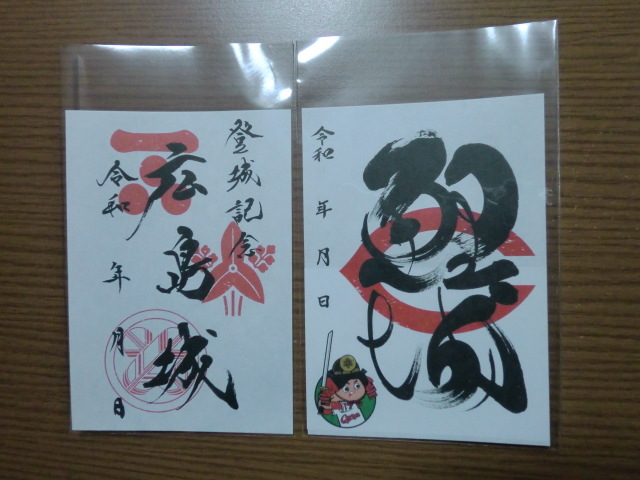 登城記念
広島城
令和 年 月 日
令和 年 月 日
Carp